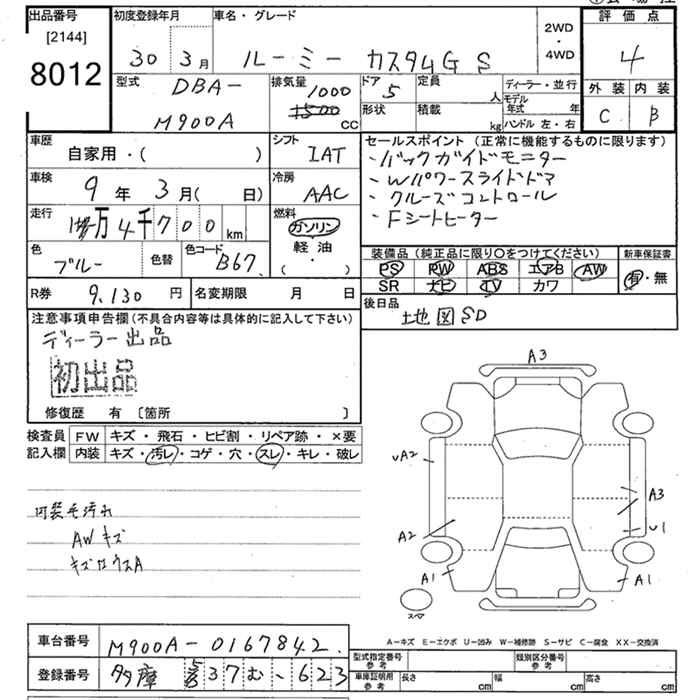 出品番号
[2144]
8012
初度登録年月
30 3月
車名・グレード
ルーミー カスタムG S
2WD
・
4WD
評価点
4
外装 内装
C B
型式
DBA-
M900A
排気量
1000
1500
cc
ドア
5
定員
人
形状
積載
kg
ディーラー・並行
モデル年式 年
ハンドル 左・右
車歴
自家用・( )
シフト
IAT
車検
9年 3月( 日)
冷房
AAC
走行
万4千700km
燃料
ガソリン
・
軽油
・
( )
色
ブルー
色替
色コード
B67
R券 9,130円
名変期限 月 日
セールスポイント (正常に機能するものに限ります)
・バックガイドモニター
・Wパワースライドドア
・クルーズコントロール
・Fシートヒーター
装備品 (純正品に限り○をつけてください)
新車保証書
PS PW ABS エアB AW
SR ナビ TV カワ
有・無
後日品
地図SD
注意事項申告欄(不具合内容等は具体的に記入して下さい)
ディーラー出品
初出品
修復歴 有 〔箇所 〕
検査員記入欄
FW キズ・飛石・ヒビ割・リペア跡・×要
内装 キズ・汚レ・コゲ・穴・スレ・キレ・破レ
内装毛汚れ
AWキズ
A3
A2
A3
A2
1
A1
A1
スペア
A-キズ E-エクボ U-凹み W-補修跡 S-サビ C-腐食 XX-交換済
車台番号 M900A-0167842
登録番号 多摩 37 む-623
型式指定番号 参考
類別区分番号 参考
車庫証明用 参考
長さ cm
幅 cm
高さ cm